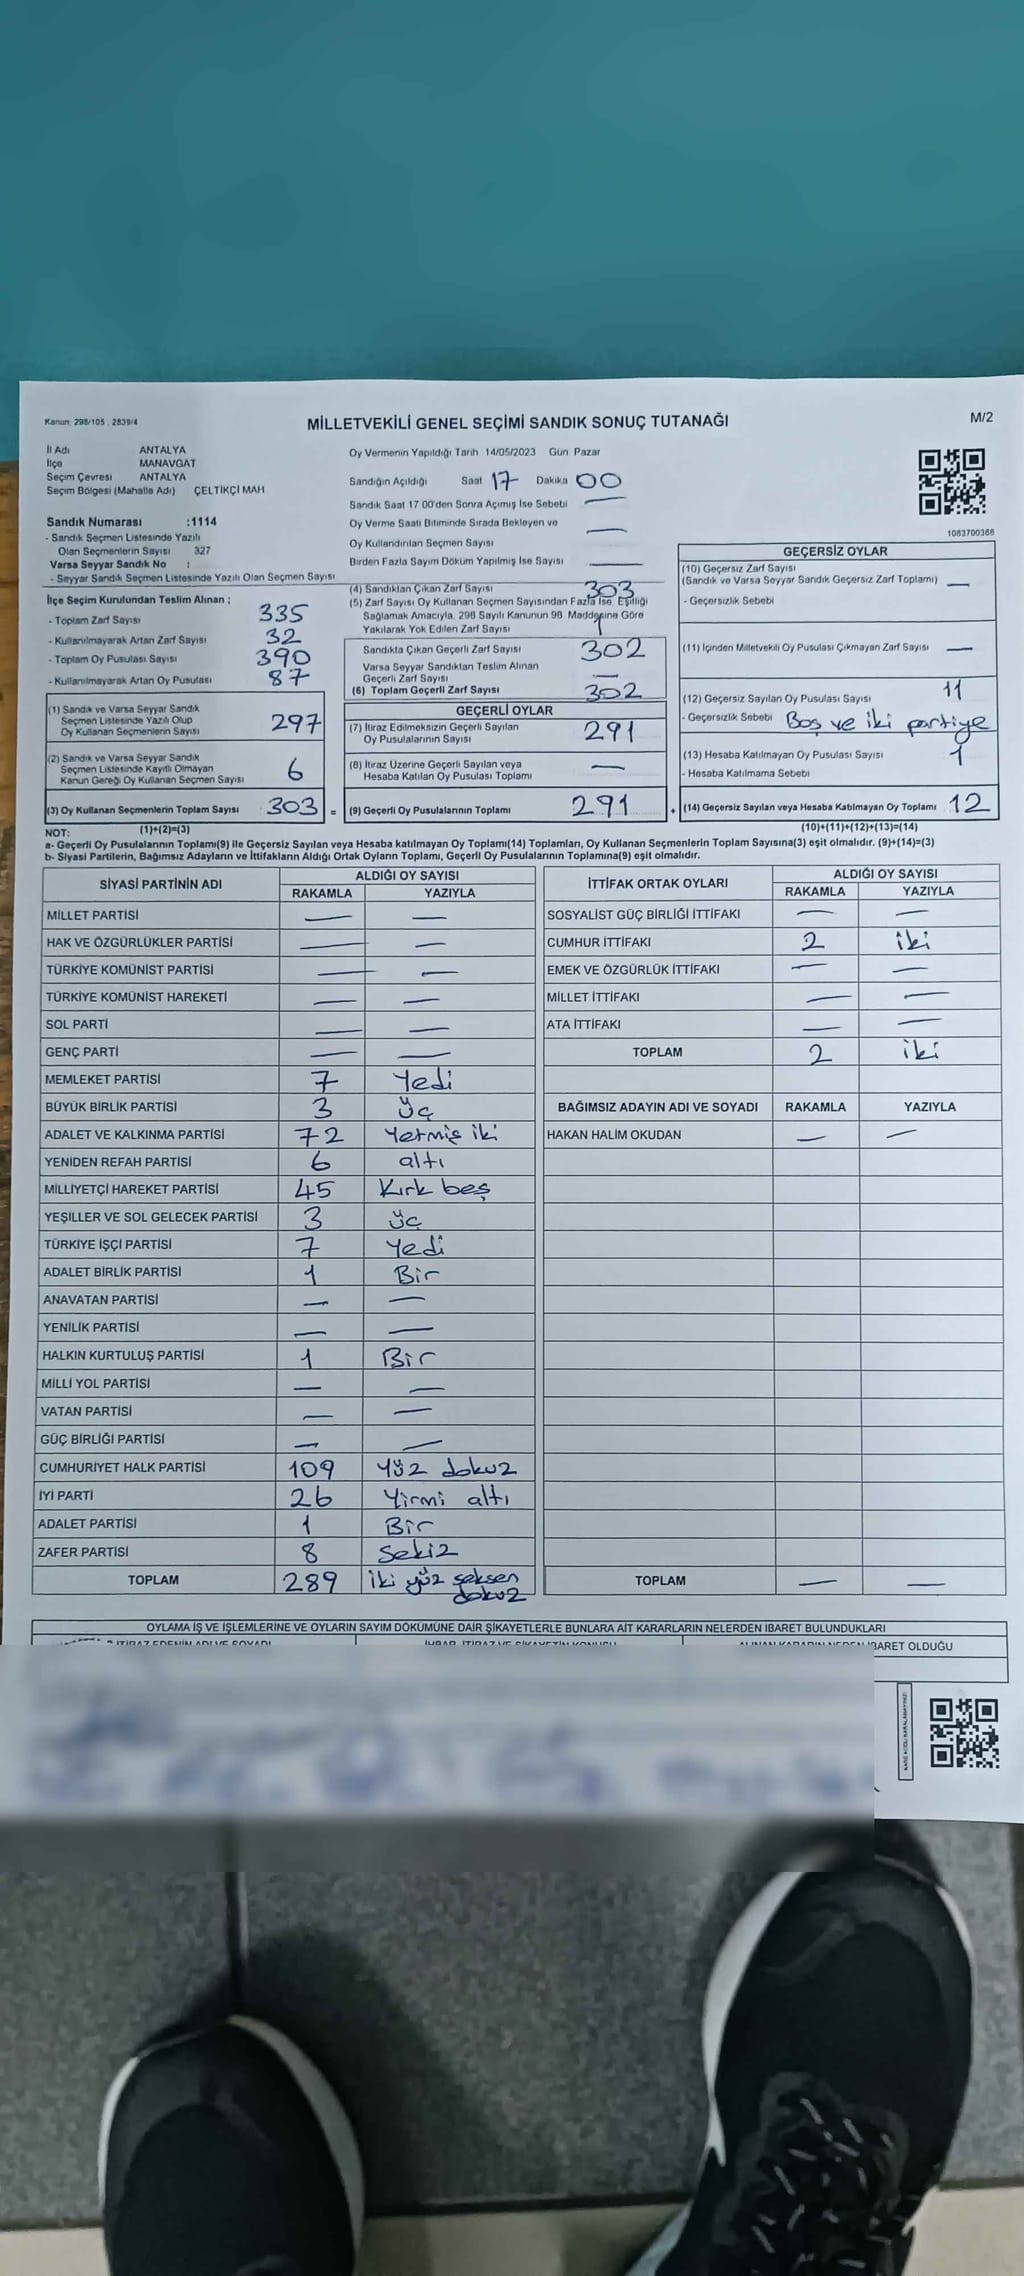 Kanun: 298/105 , 2839/4
MİLLETVEKİLİ GENEL SEÇİMİ SANDIK SONUÇ TUTANAĞI
M/2
İl Adı ANTALYA
İlçe MANAVGAT
Seçim Çevresi ANTALYA
Seçim Bölgesi (Mahalle Adı) ÇELTİKÇİ MAH
Sandık Numarası :1114
- Sandık Seçmen Listesinde Yazılı
Olan Seçmenlerin Sayısı 327
Varsa Seyyar Sandık No :
- Seyyar Sandık Seçmen Listesinde Yazılı Olan Seçmen Sayısı
Oy Vermenin Yapıldığı Tarih 14/05/2023 Gün Pazar
Sandığın Açıldığı Saat 17 Dakika 00
Sandık Saat 17 00'den Sonra Açımış İse Sebebi —
Oy Verme Saati Bitiminde Sırada Bekleyen ve
Oy Kullandırılan Seçmen Sayısı —
Birden Fazla Sayım Döküm Yapılmış İse Sayısı —
1083700366
İlçe Seçim Kurulundan Teslim Alınan ;
- Toplam Zarf Sayısı 335
- Kullanılmayarak Artan Zarf Sayısı 32
- Toplam Oy Pusulası Sayısı 390
- Kullanılmayarak Artan Oy Pusulası 87
(1) Sandık ve Varsa Seyyar Sandık
Seçmen Listesinde Yazılı Olup
Oy Kullanan Seçmenlerin Sayısı 297
(2) Sandık ve Varsa Seyyar Sandık
Seçmen Listesinde Kayıtlı Olmayan
Kanun Gereği Oy Kullanan Seçmen Sayısı 6
(3) Oy Kullanan Seçmenlerin Toplam Sayısı 303 =
(1)+(2)=(3)
(4) Sandıktan Çıkan Zarf Sayısı 303
(5) Zarf Sayısı Oy Kullanan Seçmen Sayısından Fazla İse, Eşitliği
Sağlamak Amacıyla, 298 Sayılı Kanunun 98 Maddesine Göre
Yakılarak Yok Edilen Zarf Sayısı 1
Sandıkta Çıkan Geçerli Zarf Sayısı 302
Varsa Seyyar Sandıktan Teslim Alınan
Geçerli Zarf Sayısı —
(6) Toplam Geçerli Zarf Sayısı 302
GEÇERLİ OYLAR
(7) İtiraz Edilmeksizin Geçerli Sayılan
Oy Pusulalarının Sayısı 291
(8) İtiraz Üzerine Geçerli Sayılan veya
Hesaba Katılan Oy Pusulası Toplamı —
(9) Geçerli Oy Pusulalarının Toplamı 291 +
GEÇERSİZ OYLAR
(10) Geçersiz Zarf Sayısı
(Sandık ve Varsa Seyyar Sandık Geçersiz Zarf Toplamı) —
- Geçersizlik Sebebi
(11) İçinden Milletvekili Oy Pusulası Çıkmayan Zarf Sayısı —
(12) Geçersiz Sayılan Oy Pusulası Sayısı 11
- Geçersizlik Sebebi Boş ve iki partiye
(13) Hesaba Katılmayan Oy Pusulası Sayısı 1
- Hesaba Katılmama Sebebi
(14) Geçersiz Sayılan veya Hesaba Katılmayan Oy Toplamı 12
(10)+(11)+(12)+(13)=(14)
NOT:
a- Geçerli Oy Pusulalarının Toplamı(9) ile Geçersiz Sayılan veya Hesaba katılmayan Oy Toplamı(14) Toplamları, Oy Kullanan Seçmenlerin Toplam Sayısına(3) eşit olmalıdır. (9)+(14)=(3)
b- Siyasi Partilerin, Bağımsız Adayların ve İttifakların Aldığı Ortak Oyların Toplamı, Geçerli Oy Pusulalarının Toplamına(9) eşit olmalıdır.
SİYASİ PARTİNİN ADI ALDIĞI OY SAYISI
RAKAMLA YAZIYLA
MİLLET PARTİSİ — —
HAK VE ÖZGÜRLÜKLER PARTİSİ — —
TÜRKİYE KOMÜNİST PARTİSİ — —
TÜRKİYE KOMÜNİST HAREKETİ — —
SOL PARTİ — —
GENÇ PARTİ — —
MEMLEKET PARTİSİ 7 Yedi
BÜYÜK BİRLİK PARTİSİ 3 Üç
ADALET VE KALKINMA PARTİSİ 72 Yetmiş iki
YENİDEN REFAH PARTİSİ 6 altı
MİLLİYETÇİ HAREKET PARTİSİ 45 Kırk beş
YEŞİLLER VE SOL GELECEK PARTİSİ 3 üç
TÜRKİYE İŞÇİ PARTİSİ 7 Yedi
ADALET BİRLİK PARTİSİ 1 Bir
ANAVATAN PARTİSİ — —
YENİLİK PARTİSİ — —
HALKIN KURTULUŞ PARTİSİ 1 Bir
MİLLİ YOL PARTİSİ — —
VATAN PARTİSİ — —
GÜÇ BİRLİĞİ PARTİSİ — —
CUMHURİYET HALK PARTİSİ 109 Yüz dokuz
İYİ PARTİ 26 Yirmi altı
ADALET PARTİSİ 1 Bir
ZAFER PARTİSİ 8 Sekiz
TOPLAM 289 İki yüz seksen
dokuz
İTTİFAK ORTAK OYLARI ALDIĞI OY SAYISI
RAKAMLA YAZIYLA
SOSYALİST GÜÇ BİRLİĞİ İTTİFAKI — —
CUMHUR İTTİFAKI 2 iki
EMEK VE ÖZGÜRLÜK İTTİFAKI — —
MİLLET İTTİFAKI — —
ATA İTTİFAKI — —
TOPLAM 2 iki
BAĞIMSIZ ADAYIN ADI VE SOYADI RAKAMLA YAZIYLA
HAKAN HALİM OKUDAN — —
TOPLAM — —
OYLAMA İŞ VE İŞLEMLERİNE VE OYLARIN SAYIM DÖKÜMÜNE DAİR ŞİKAYETLERLE BUNLARA AİT KARARLARIN NELERDEN İBARET BULUNDUKLARI
İTİRAZ EDENİN ADI VE SOYADI İHBAR, İTİRAZ VE ŞİKAYETİN KONUSU ALINAN KARARIN NEDEN İBARET OLDUĞU